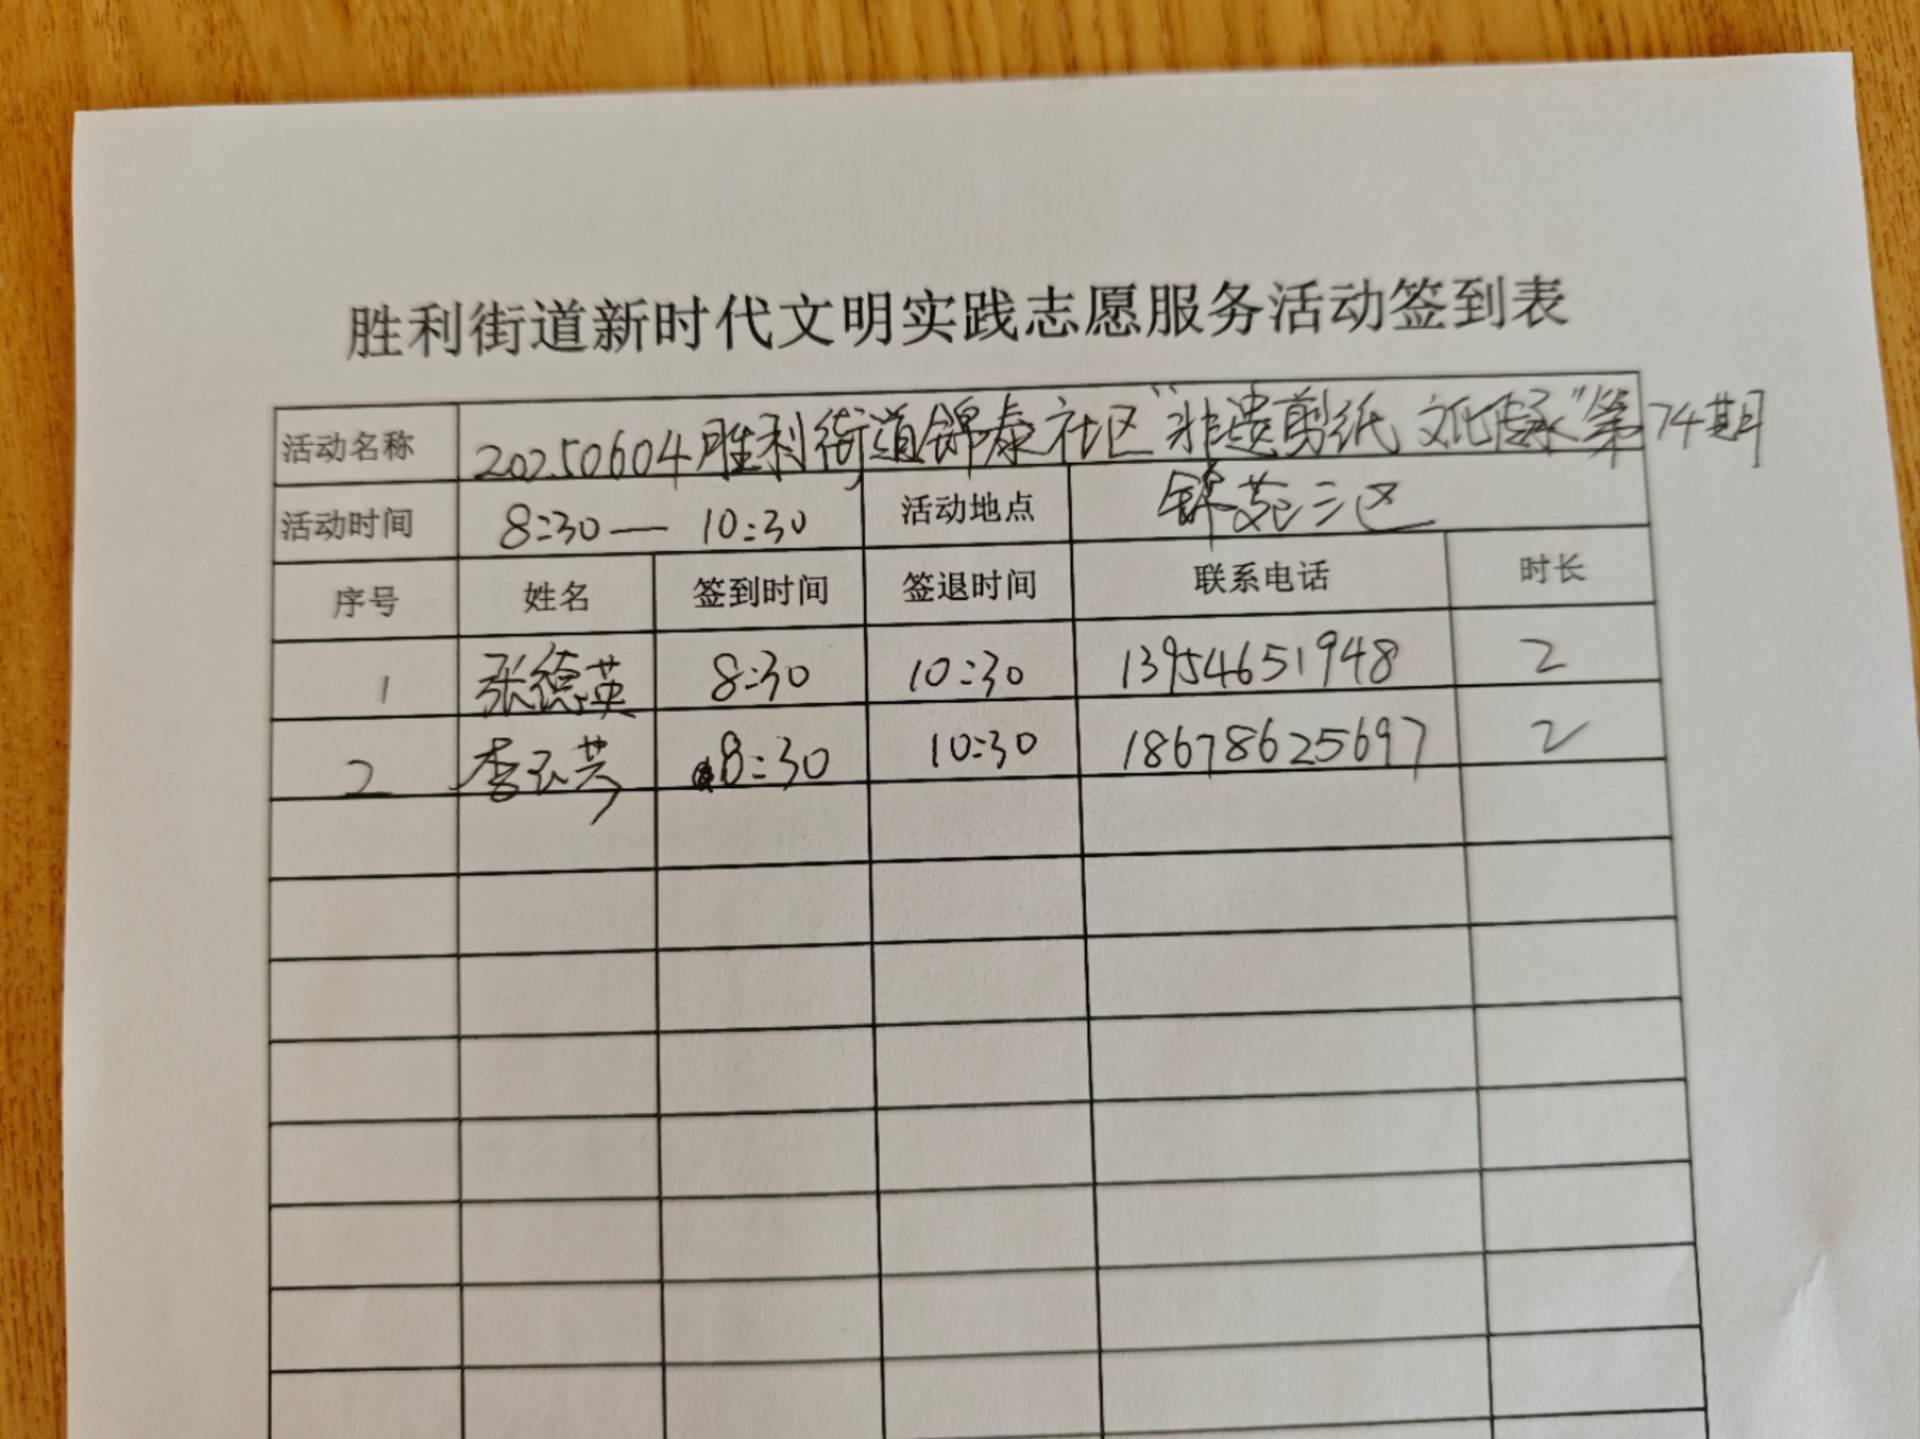 胜利街道新时代文明实践志愿服务活动签到表
活动名称 20250604胜利街道锦泰社区“非遗剪纸 文化传承”第74期
活动时间 8:30— 10:30 活动地点 锦苑三区
序号 姓名 签到时间 签退时间 联系电话 时长
1 张德英 8:30 10:30 13954651948 2
2 8:30 10:30 18678625697 2